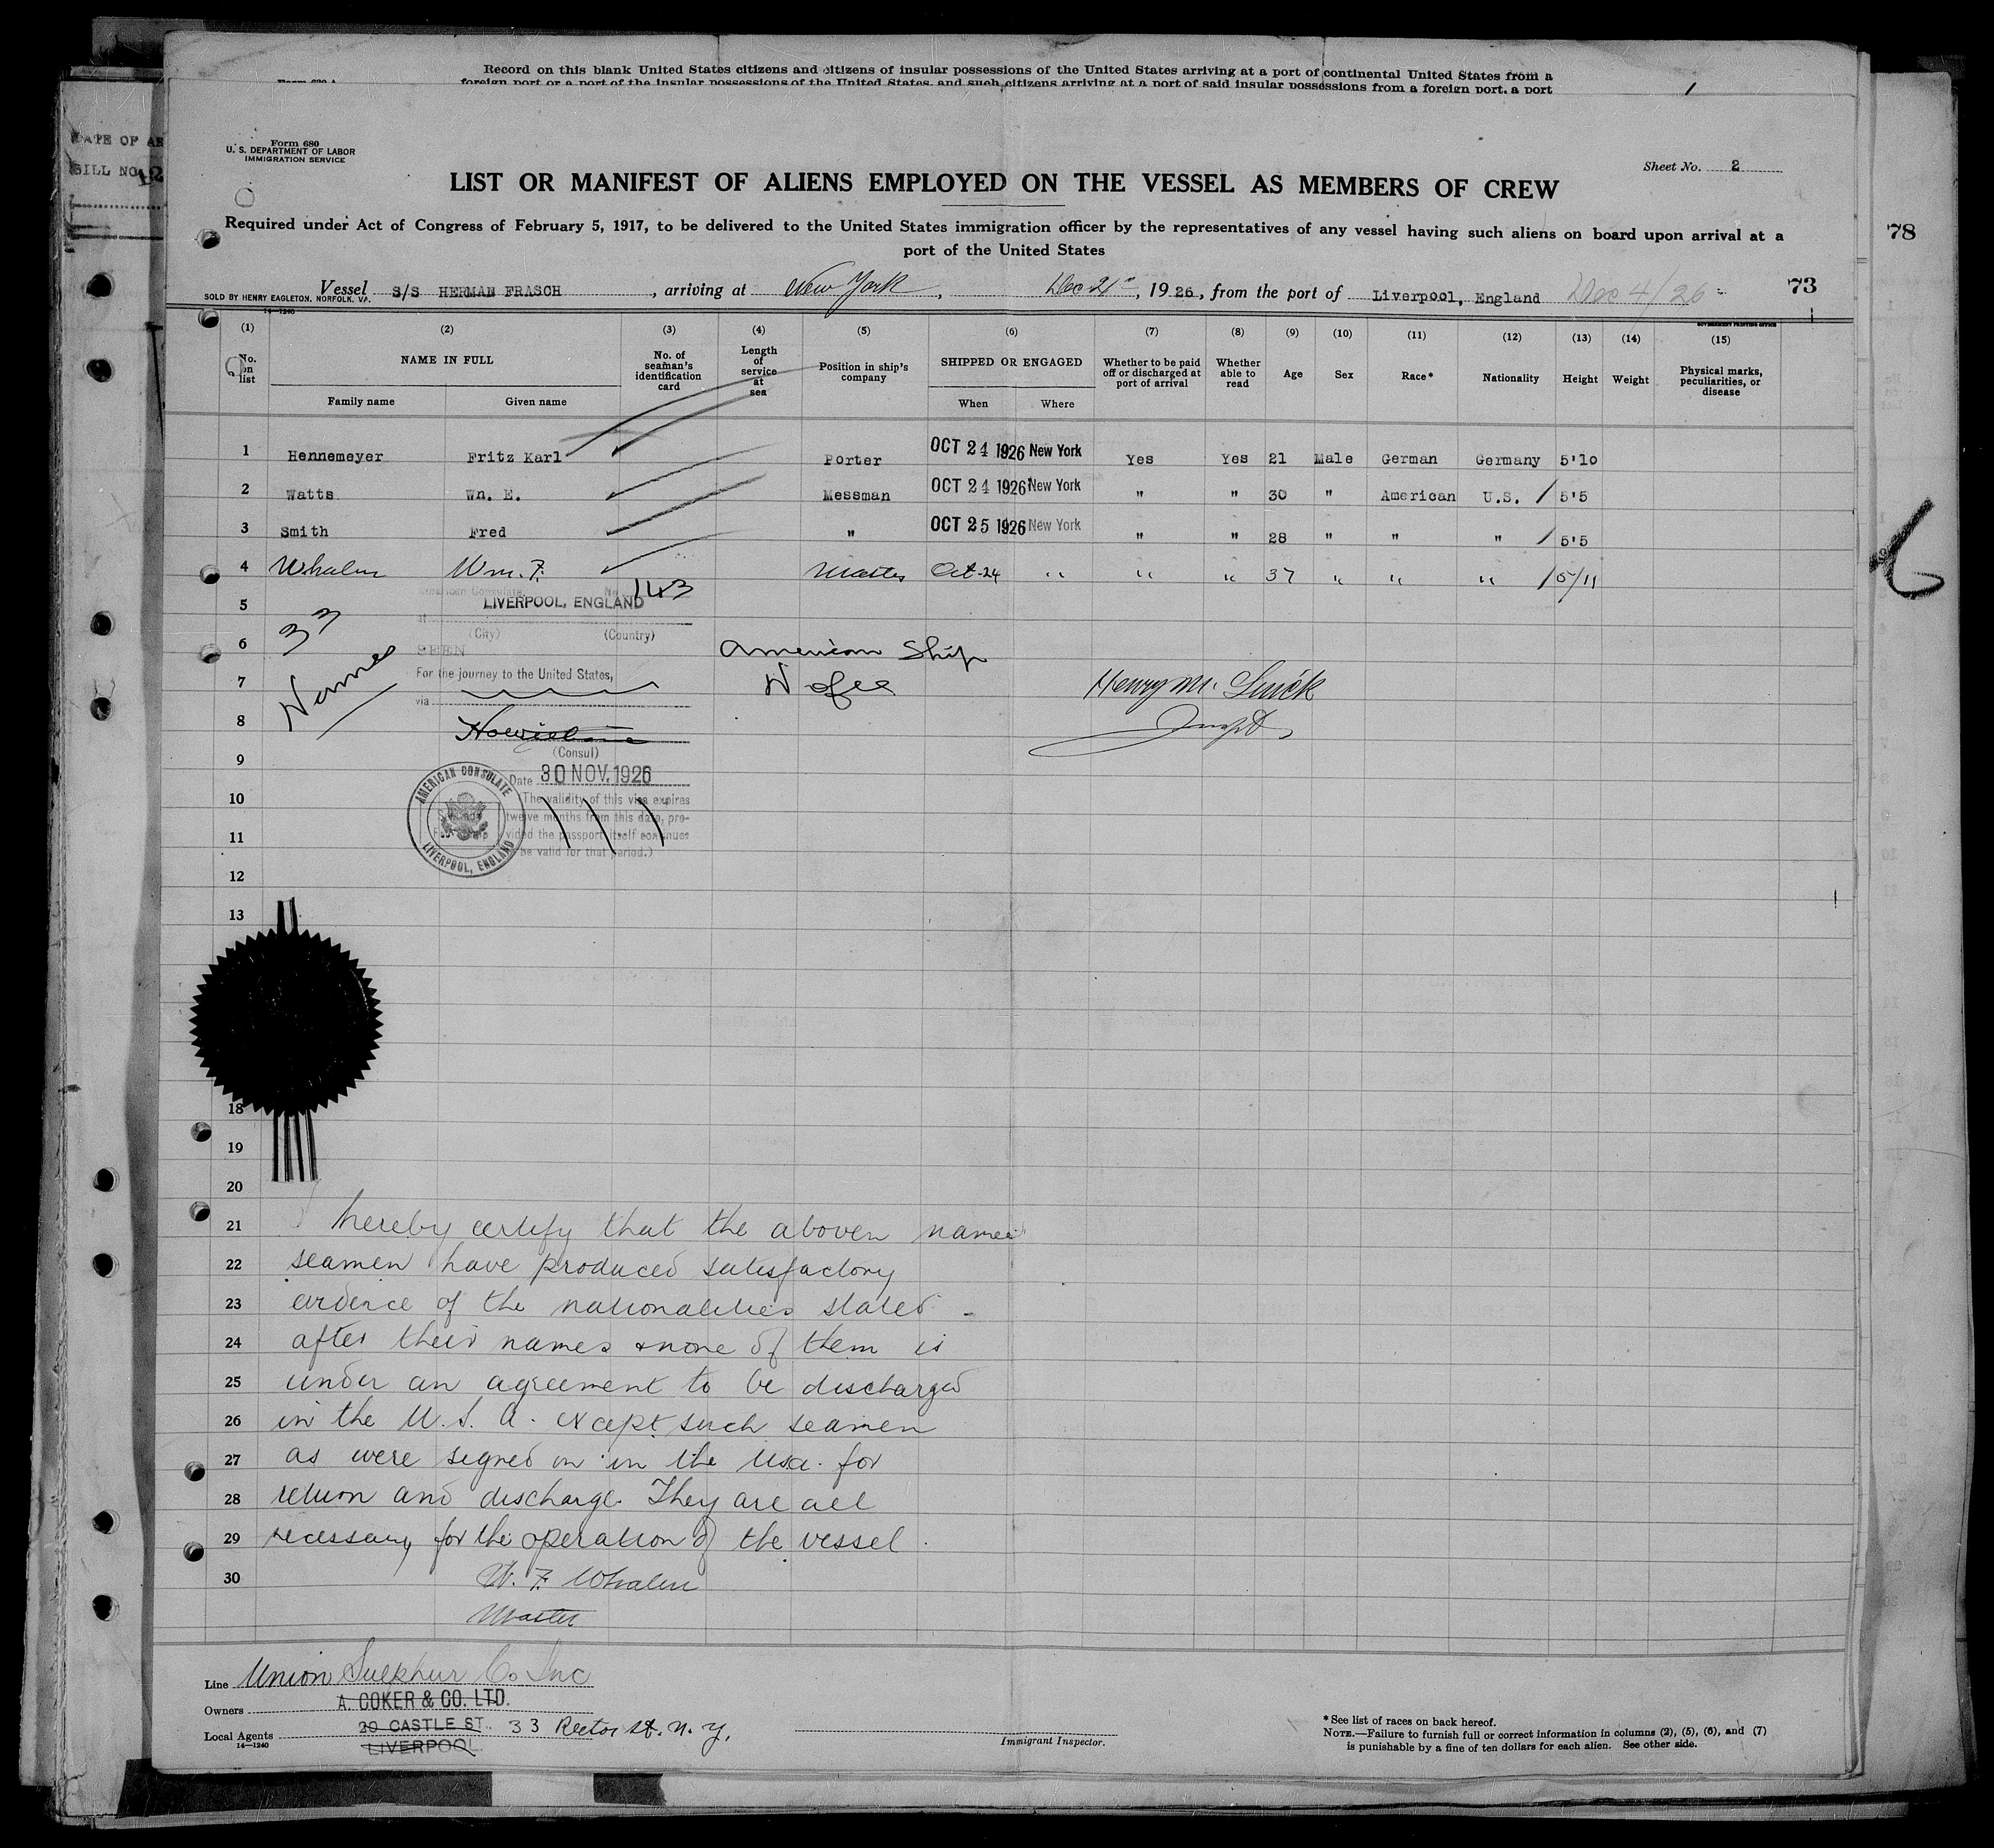 Record on this blank United States citizens and citizens of insular possessions of the United States arriving at a port of continental United States from a
foreign port or a port of the insular possessions of the United States, and such citizens arriving at a port of said insular possessions from a foreign port, a port
Form 680
U. S. DEPARTMENT OF LABOR
IMMIGRATION SERVICE
Sheet No. 2
LIST OR MANIFEST OF ALIENS EMPLOYED ON THE VESSEL AS MEMBERS OF CREW
Required under Act of Congress of February 5, 1917, to be delivered to the United States immigration officer by the representatives of any vessel having such aliens on board upon arrival at a
port of the United States
78
Vessel S/S HERMAN FRASCH, arriving at New York, Dec 21st, 1926, from the port of Liverpool, England Dec 4/26
73
SOLD BY HENRY EAGLETON, NORFOLK, VA.
14—1240
GOVERNMENT PRINTING OFFICE
(1) (2) (3) (4) (5) (6) (7) (8) (9) (10) (11) (12) (13) (14) (15)
No. on list NAME IN FULL No. of seaman's identification card Length of service at sea Position in ship's company SHIPPED OR ENGAGED Whether to be paid off or discharged at port of arrival Whether able to read Age Sex Race* Nationality Height Weight Physical marks, peculiarities, or disease
Family name Given name When Where
1 Hennemeyer Fritz Karl Porter OCT 24 1926 New York Yes Yes 21 Male German Germany 5'10
2 Watts Wn. E. Messman OCT 24 1926 New York " " 30 " American U.S. / 5'5
3 Smith Fred " OCT 25 1926 New York " " 28 " " " / 5'5
4 Whalen Wm. F. Master Oct-24 " " " 37 " " " / 5/11
American Consulate No. 143
5 LIVERPOOL, ENGLAND
at
(City) (Country)
6 33 SEEN American Ship
7 Names For the journey to the United States, No fee Henry M.
via
8
(Consul)
9
Date 30 NOV. 1926
AMERICAN CONSULATE
LIVERPOOL, ENGLAND
10 (The validity of this visa expires
twelve months from this date, pro-
11 vided the passport itself continues
to be valid for that period.)
12
13
18
19
20
21 hereby certify that the aboven named
22 seamen have produced satisfactory
23 evidence of the nationalities stated
24 after their names & none of them is
25 under an agreement to be discharged
26 in the U. S. A. except such seamen
27 as were signed on in the Usa. for
28 return and discharge. They are all
29 necessary for the operation of the vessel.
30 W. F. Whalen
Master
Line Union Sulphur Co. Inc
Owners A. COKER & CO. LTD.
Local Agents 20 CASTLE ST. 33 Rector St. N. Y.
LIVERPOOL
14—1240
Immigrant Inspector.
* See list of races on back hereof.
NOTE.—Failure to furnish full or correct information in columns (2), (5), (6), and (7)
is punishable by a fine of ten dollars for each alien. See other side.